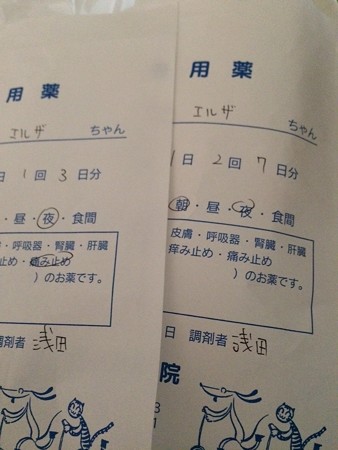 用薬
エルザ ちゃん
日1回3日分
・昼・夜・食間
・呼吸器・腎臓・肝臓
止め・痛み止め
)のお薬です。
調剤者 浅田
用薬
エルザ ちゃん
1日2回7日分
朝・昼・夜・食間
皮膚・呼吸器・腎臓・肝臓
痒み止め・痛み止め
)のお薬です。
日 調剤者 浅田
院
3
1